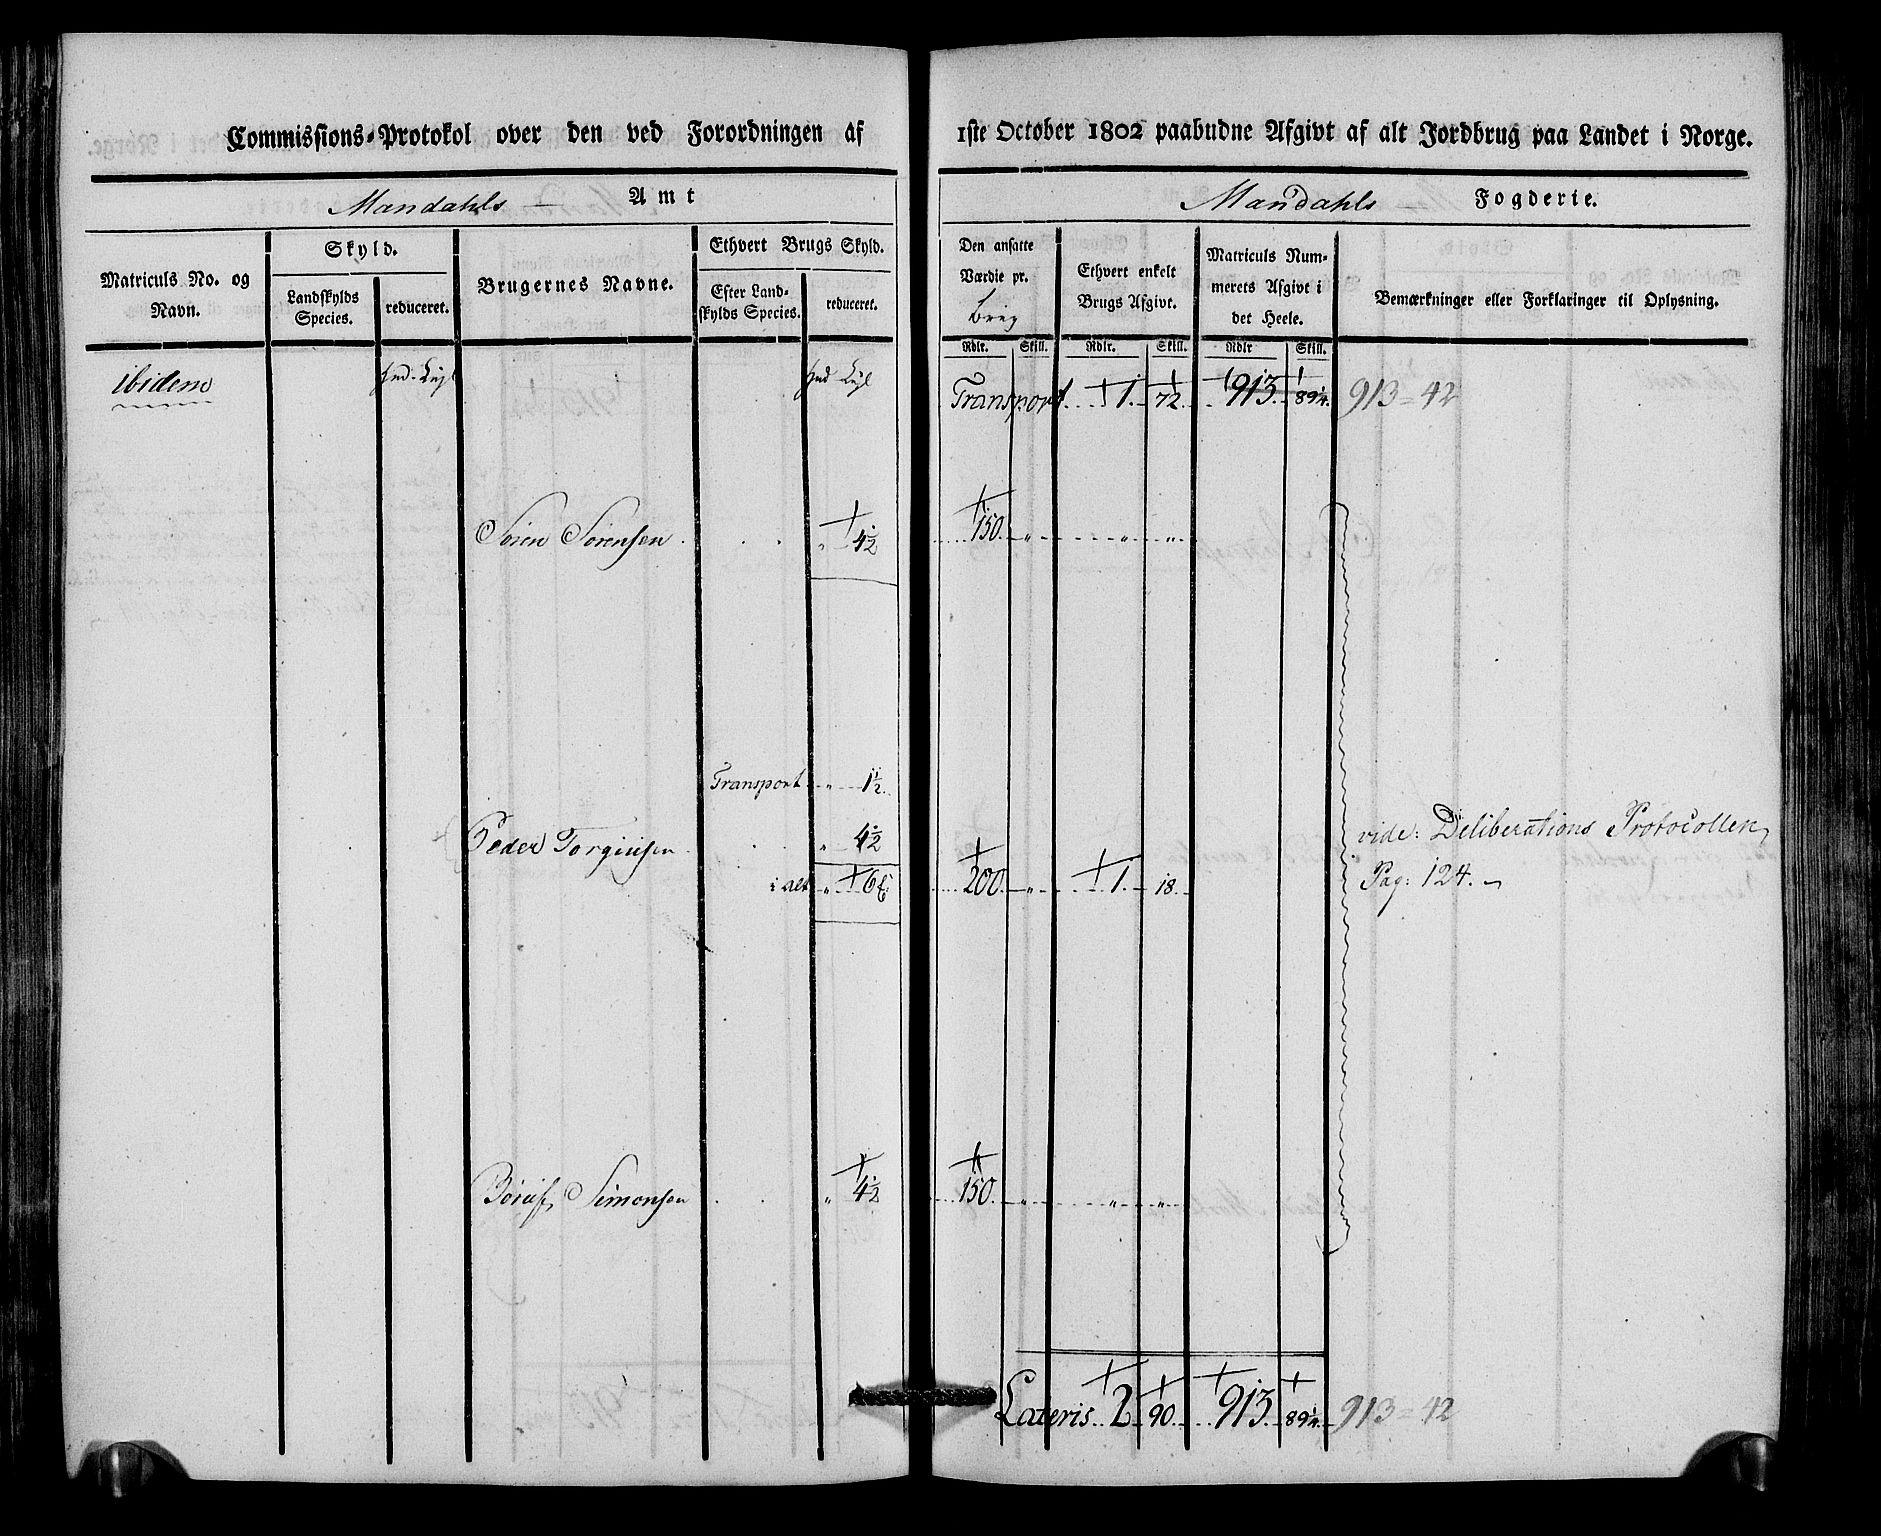 Commissions-Protokol over den ved Forordningen af 1ste October 1802 paabudne Afgivt af alt Jordbrug paa Landet i Norge.
Mandahls Amt
Mandahls Fogderie.
Matriculs No. og Navn.
Skyld.
Landskylds Species.
reduceret.
Brugernes Navne.
Ethvert Brugs Skyld.
Efter Landskylds Species.
reduceret.
Den ansatte Værdie pr. brug
Ethvert enkelt Brugs Afgivt.
Matriculs Nummerets Afgivt i det Heele.
Bemærkninger eller Forklaringer til Oplysning.
Rdlr. Skill. Rdlr. Skill. Rdlr Skill.
ibidem
Transport 1. 72. 913. 913=42
Søren Sørensen „ 4½ 150. „ „ „
Transport „ 1½
Peder Torgiusen „ 4½
i alt „ 6 200 „ 1. 18.
vide: Deliberations Protocollen
Pag: 124.
Simonsen „ 4½ 150. „ „ „
Lateris 2 90 913. 913=42